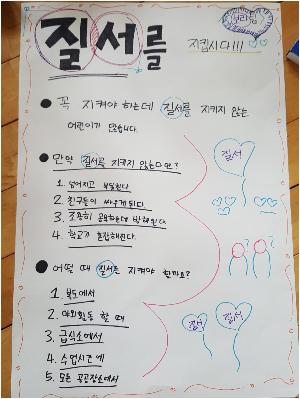 질서를
지킵시다!!!
꼭 지켜야 하는데 질서를 지키지 않는
어린이가 많습니다.
만약 질서를 지키지 않는다면?
1. 넘어지고 부딪힌다.
2. 친구들이 싸우게 된다.
3. 조용히 공부하는데 방해된다.
4. 학교가 혼잡해진다.
어떨 때 질서를 지켜야 할까요?
1. 복도에서
2. 야외활동 할 때
3. 급식소에서
4. 수업시간에
5. 모든 공공장소에서
질서
질서
질서